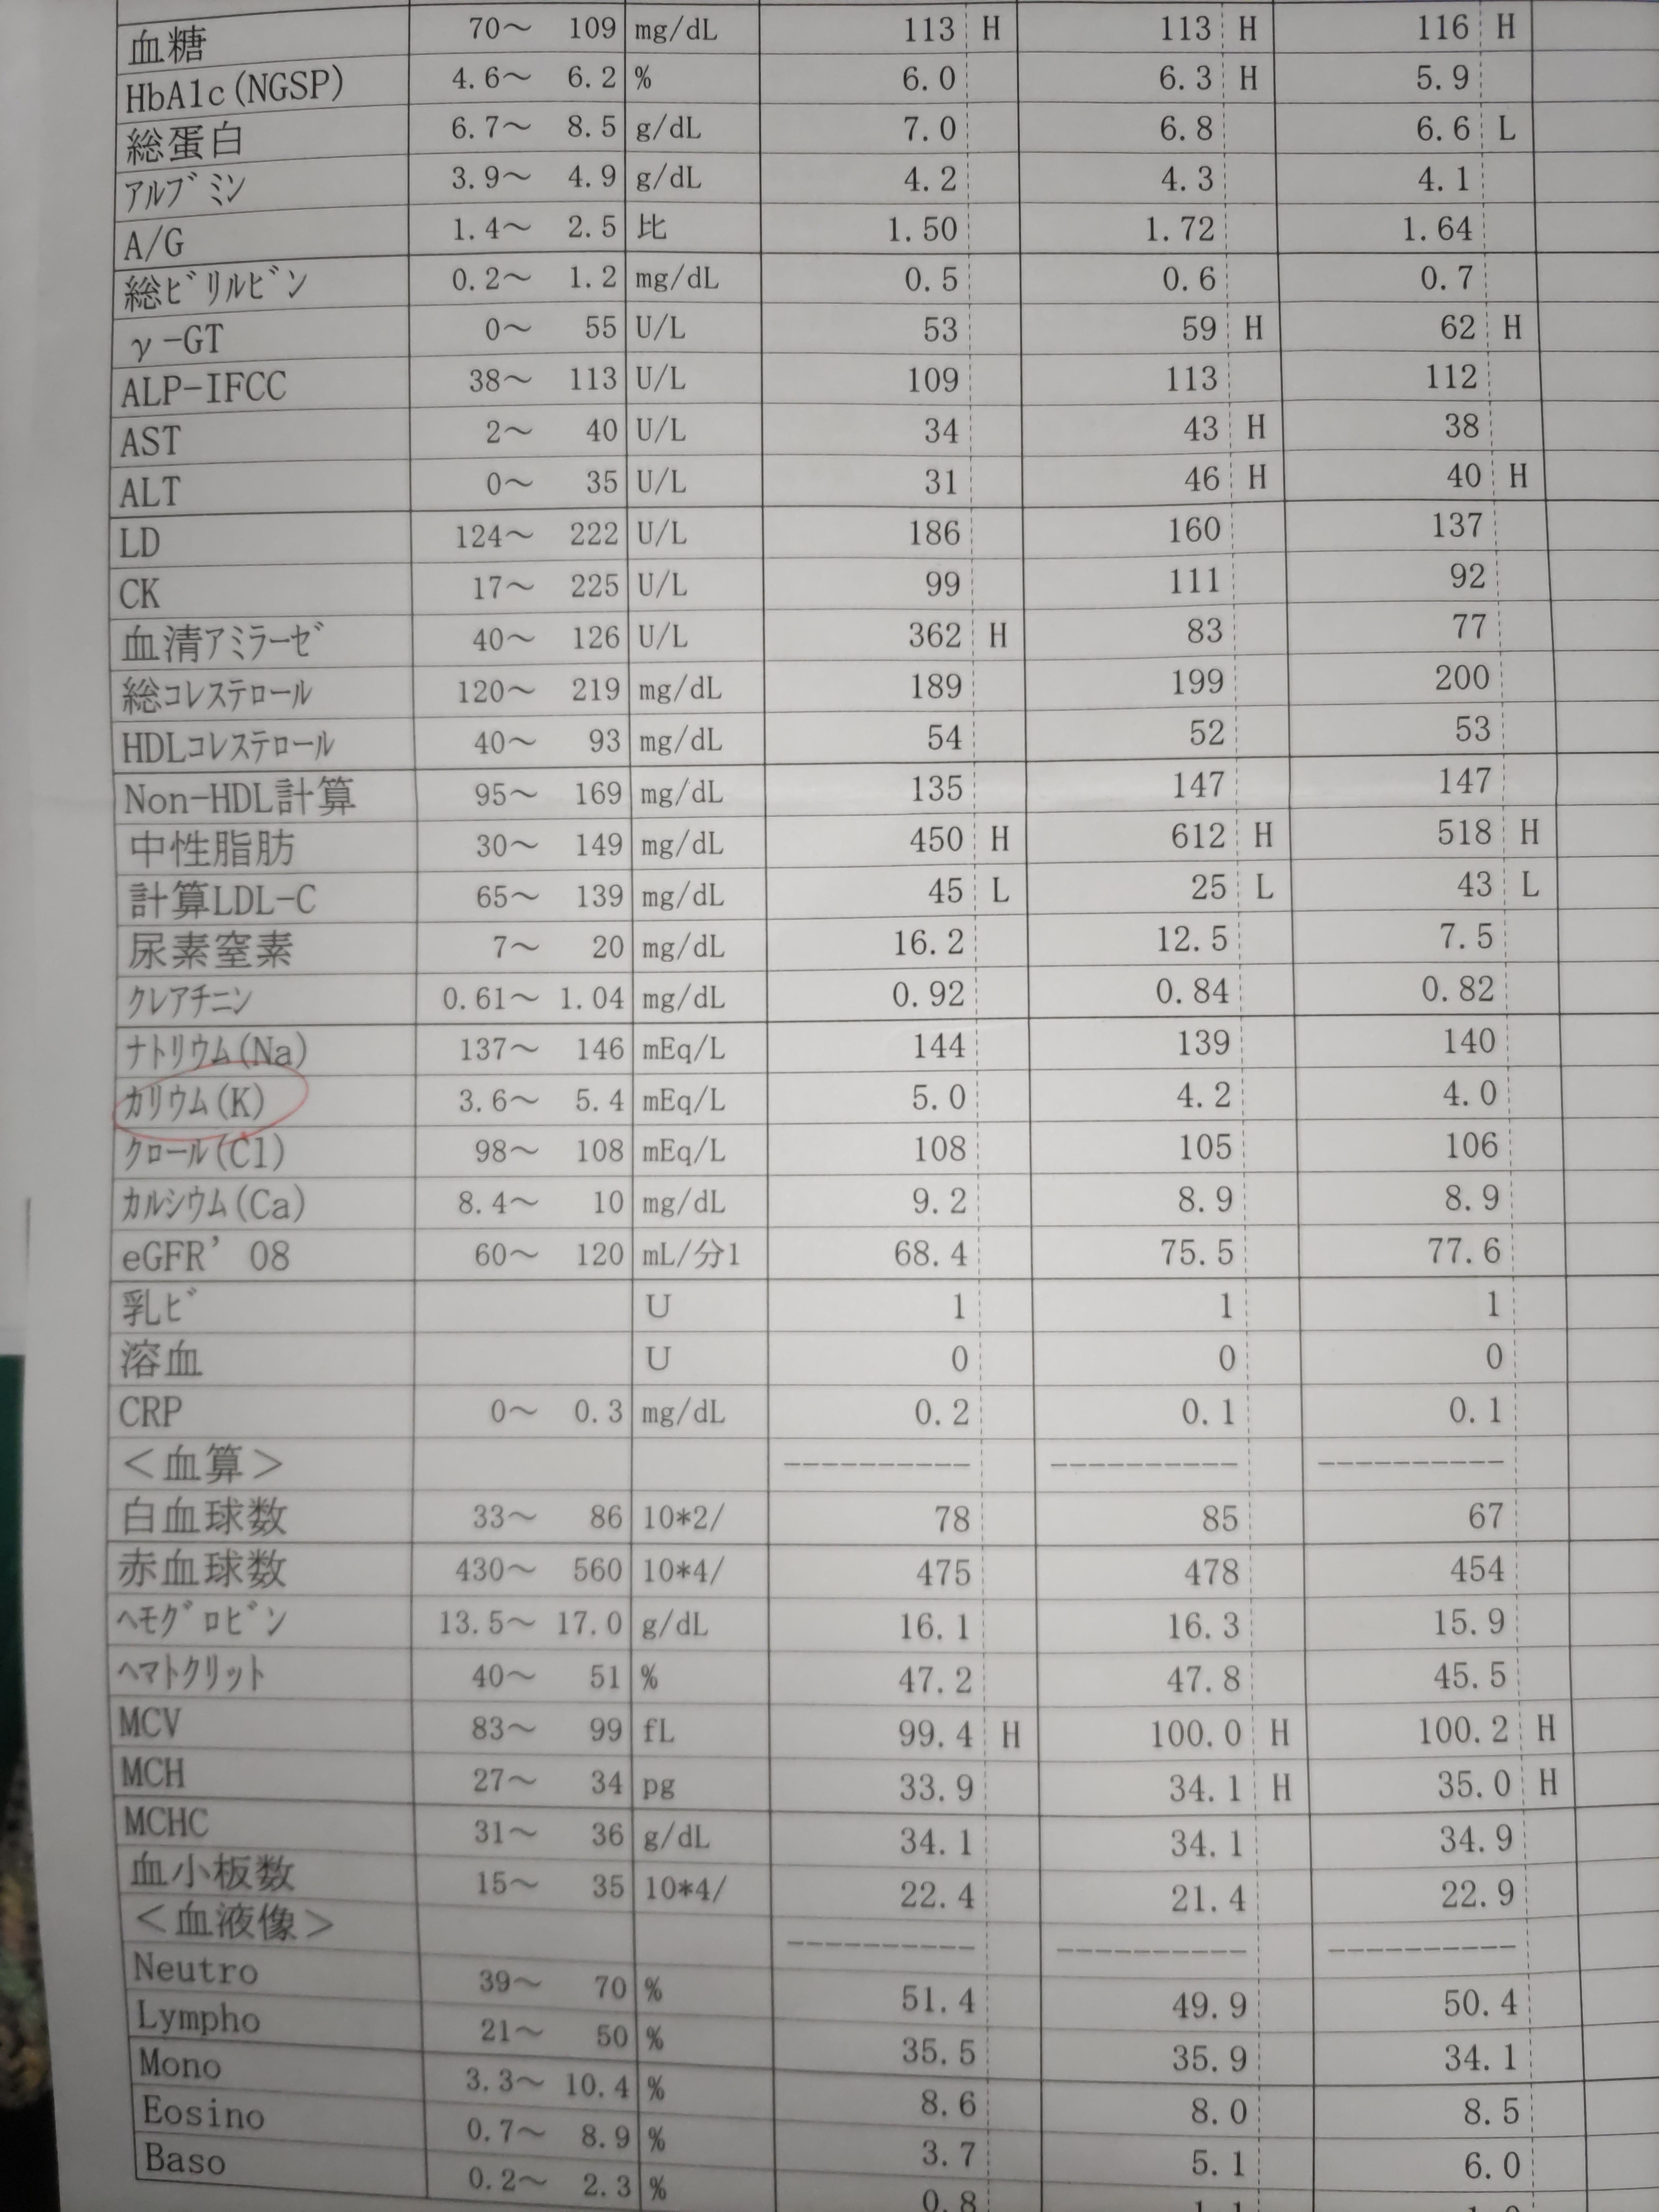 血糖 70～ 109 mg/dL 113 H 113 H 116 H
HbA1c(NGSP) 4.6～ 6.2 % 6.0 6.3 H 5.9
総蛋白 6.7～ 8.5 g/dL 7.0 6.8 6.6 L
ｱﾙﾌﾞﾐﾝ 3.9～ 4.9 g/dL 4.2 4.3 4.1
A/G 1.4～ 2.5 比 1.50 1.72 1.64
総ﾋﾞﾘﾙﾋﾞﾝ 0.2～ 1.2 mg/dL 0.5 0.6 0.7
γ-GT 0～ 55 U/L 53 59 H 62 H
ALP-IFCC 38～ 113 U/L 109 113 112
AST 2～ 40 U/L 34 43 H 38
ALT 0～ 35 U/L 31 46 H 40 H
LD 124～ 222 U/L 186 160 137
CK 17～ 225 U/L 99 111 92
血清ｱﾐﾗｰｾﾞ 40～ 126 U/L 362 H 83 77
総ｺﾚｽﾃﾛｰﾙ 120～ 219 mg/dL 189 199 200
HDLｺﾚｽﾃﾛｰﾙ 40～ 93 mg/dL 54 52 53
Non-HDL計算 95～ 169 mg/dL 135 147 147
中性脂肪 30～ 149 mg/dL 450 H 612 H 518 H
計算LDL-C 65～ 139 mg/dL 45 L 25 L 43 L
尿素窒素 7～ 20 mg/dL 16.2 12.5 7.5
ｸﾚｱﾁﾆﾝ 0.61～ 1.04 mg/dL 0.92 0.84 0.82
ﾅﾄﾘｳﾑ(Na) 137～ 146 mEq/L 144 139 140
ｶﾘｳﾑ(K) 3.6～ 5.4 mEq/L 5.0 4.2 4.0
ｸﾛｰﾙ(Cl) 98～ 108 mEq/L 108 105 106
ｶﾙｼｳﾑ(Ca) 8.4～ 10 mg/dL 9.2 8.9 8.9
eGFR’08 60～ 120 mL/分1 68.4 75.5 77.6
乳ﾋﾞ U 1 1 1
溶血 U 0 0 0
CRP 0～ 0.3 mg/dL 0.2 0.1 0.1
＜血算＞ ---------- ---------- ----------
白血球数 33～ 86 10*2/ 78 85 67
赤血球数 430～ 560 10*4/ 475 478 454
ﾍﾓｸﾞﾛﾋﾞﾝ 13.5～ 17.0 g/dL 16.1 16.3 15.9
ﾍﾏﾄｸﾘｯﾄ 40～ 51 % 47.2 47.8 45.5
MCV 83～ 99 fL 99.4 H 100.0 H 100.2 H
MCH 27～ 34 pg 33.9 34.1 H 35.0 H
MCHC 31～ 36 g/dL 34.1 34.1 34.9
血小板数 15～ 35 10*4/ 22.4 21.4 22.9
＜血液像＞ ---------- ---------- ----------
Neutro 39～ 70 % 51.4 49.9 50.4
Lympho 21～ 50 % 35.5 35.9 34.1
Mono 3.3～ 10.4 % 8.6 8.0 8.5
Eosino 0.7～ 8.9 % 3.7 5.1 6.0
Baso 0.2～ 2.3 % 0.8